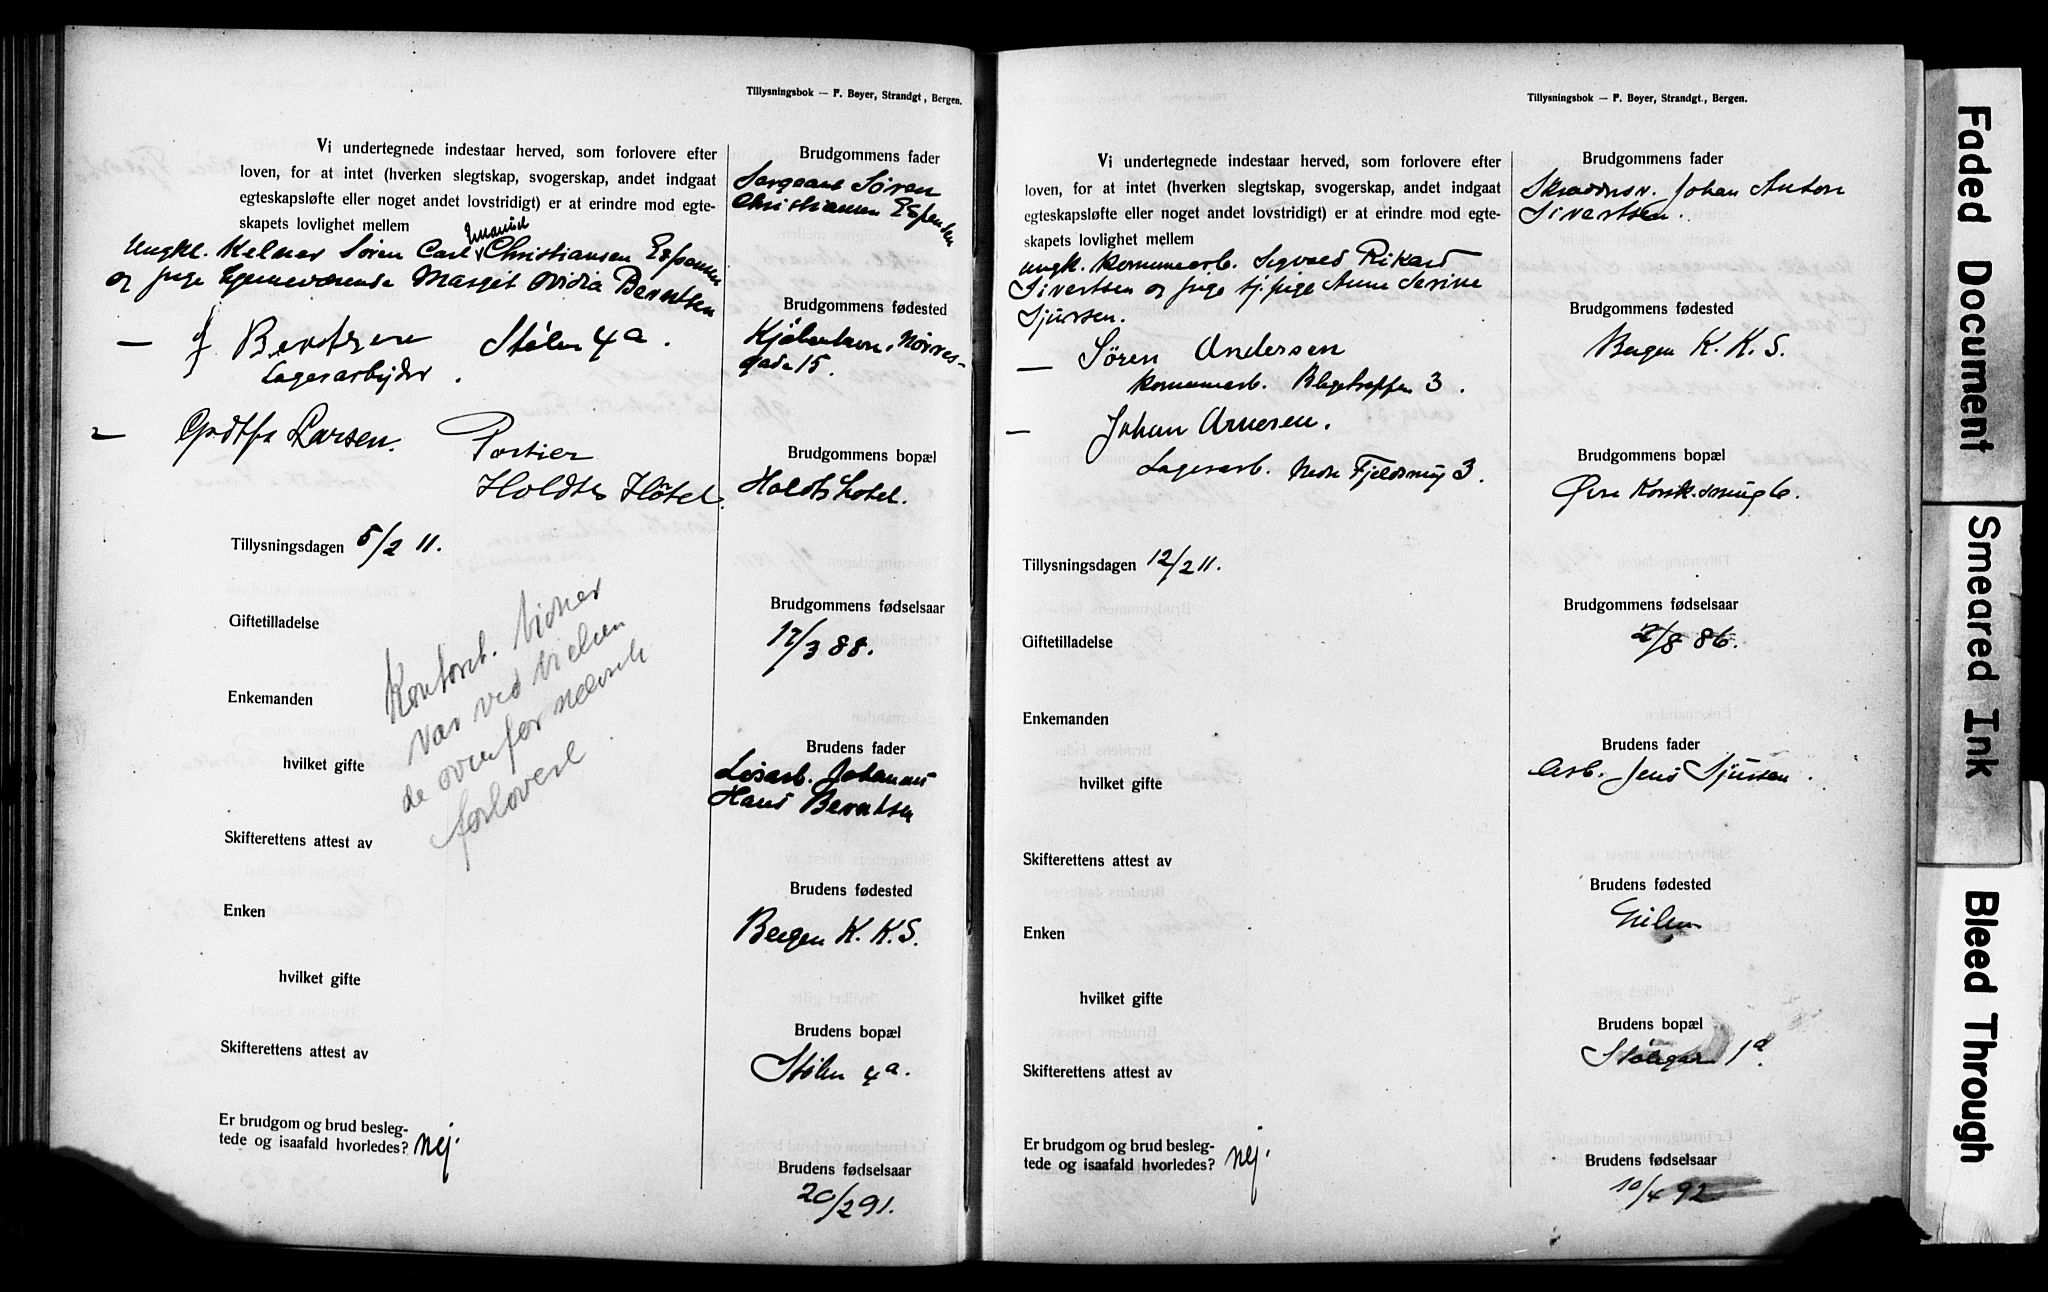 Tillysningsbok — F. Beyer, Strandgt, Bergen.
Vi undertegnede indestaar herved, som forlovere efter
loven, for at intet (hverken slegtskap, svogerskap, andet indgaat
egteskapsløfte eller noget andet lovstridigt) er at erindre mod egte-
skapets lovlighet mellem
Emanuel
Ungkl. Kelner Søren Carl Christiansen Espensen
og pige hjemmeværende Margit Ovidia Berntsen
— J Berntsen Stølen 4a.
Lagerarbejder.
— Godtfr Larsen. Portier
Holdts Hôtel.
Tillysningsdagen 5/2 11.
Giftetilladelse
Enkemanden
hvilket gifte
Skifterettens attest av
Enken
hvilket gifte
Skifterettens attest av
Er brudgom og brud besleg-
tede og isaafald hvorledes? nej.
Kontoret. Vidner
var ved vielsen
de ovenfor nævnte
forlovere
Brudgommens fader
Sergeant Søren
Christiansen Espensen
Brudgommens fødested
Kjøbenhavn, Nørre-
gade 15.
Brudgommens bopæl
Holdts hotel.
Brudgommens fødselsaar
17/3 88.
Brudens fader
Løsarb. Johannes
Hans Berntsen
Brudens fødested
Bergen K. K. S.
Brudens bopæl
Stølen 4a.
Brudens fødselsaar
20/2 91.
Tillysningsbok — F. Beyer, Strandgt., Bergen.
Vi undertegnede indestaar herved, som forlovere efter
loven, for at intet (hverken slegtskap, svogerskap, andet indgaat
egteskapsløfte eller noget andet lovstridigt) er at erindre mod egte-
skapets lovlighet mellem
ungk. komunearb. Sigvald Rikard
Sivertsen og pige tj.pige Anne Serine
Sjursen.
— Søren Andersen
komunearb. Blegetrappen 3.
— Johan Arnesen.
Lagerarb. Nedre Fjeldsmug 3.
Tillysningsdagen 12/2 11.
Giftetilladelse
Enkemanden
hvilket gifte
Skifterettens attest av
Enken
hvilket gifte
Skifterettens attest av
Er brudgom og brud besleg-
tede og isaafald hvorledes? nej.
Brudgommens fader
Skræddersv. Johan Anton
Sivertsen.
Brudgommens fødested
Bergen K. K. S.
Brudgommens bopæl
Øvre Korsk.smug 6.
Brudgommens fødselsaar
2/8 86.
Brudens fader
Arb. Jens Sjursen.
Brudens fødested
Brudens bopæl
Stølegaten 1d.
Brudens fødselsaar
10/4 92
Faded Document
Smeared Ink
Bleed Through